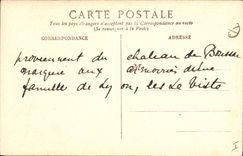 CARTE POSTALE
Tous les pays étrangers n'acceptent pas la Correspondance au recto
(Se renseigner à la Poste)
CORRESPONDANCE
ADRESSE
proviennent du chateau de Boussac
aux armoiries d'une
famille de Lyon, les Le Viste